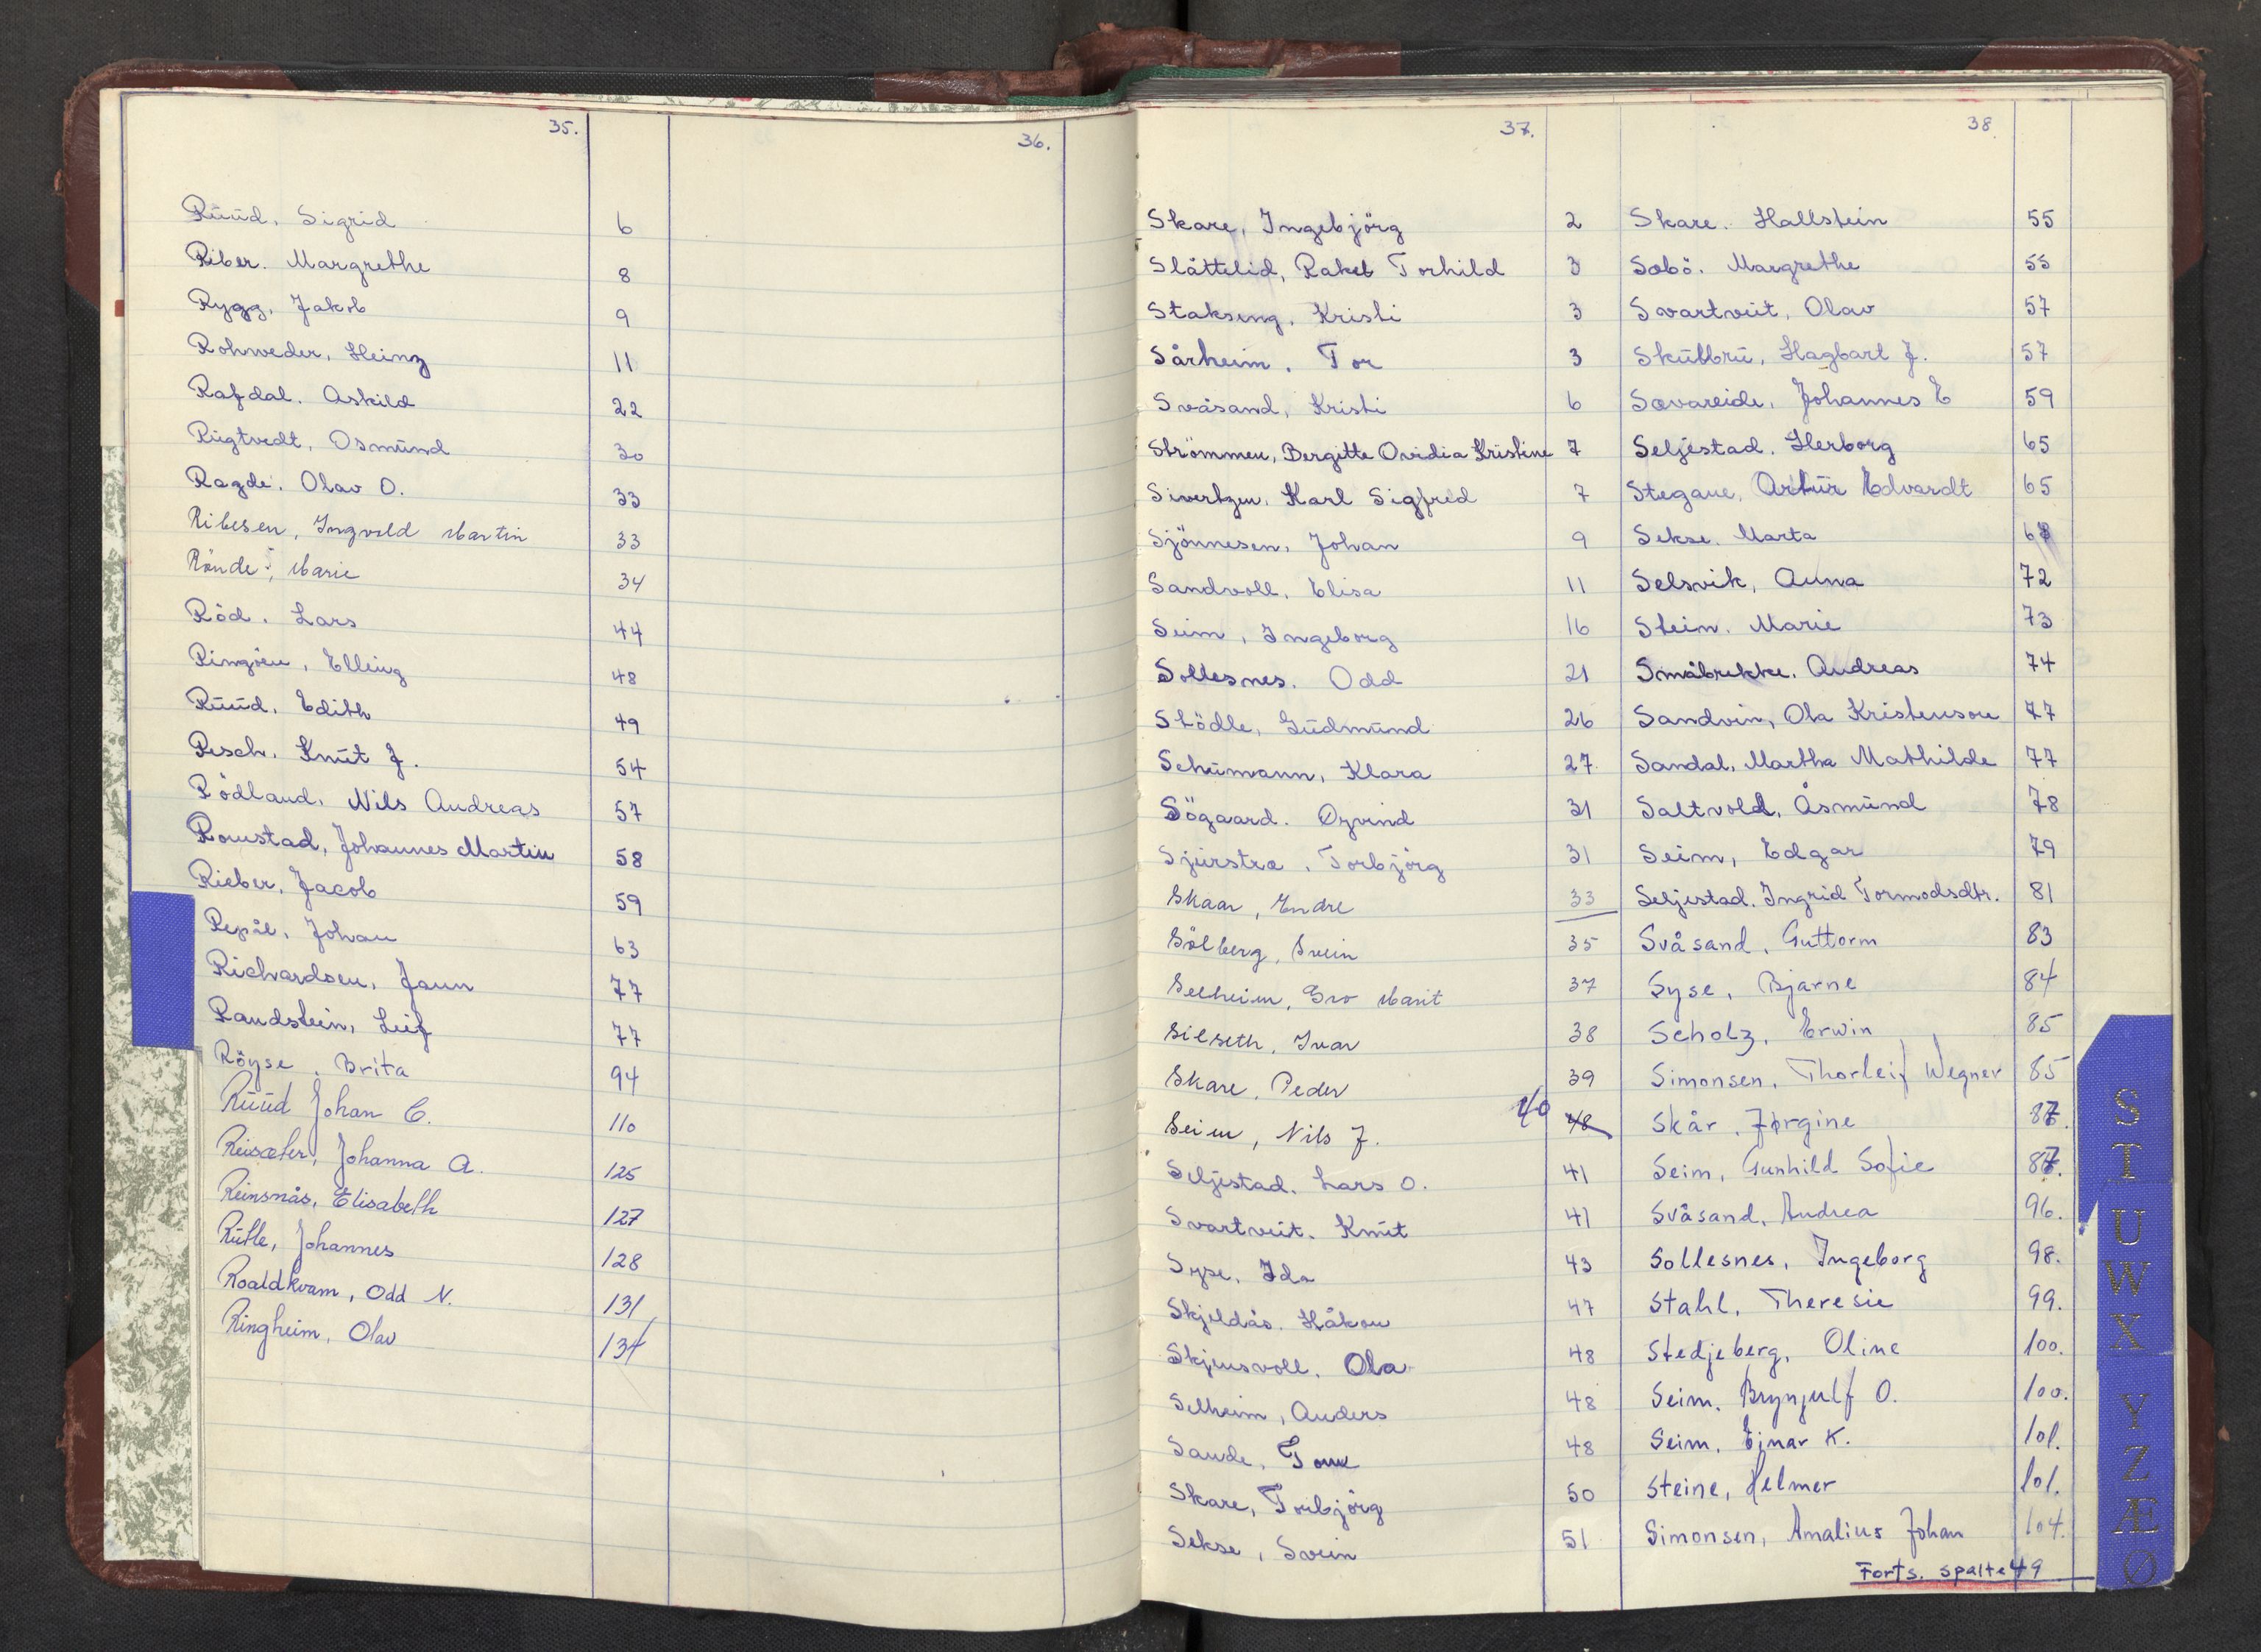 35.
Ruud, Sigrid 6
Riber. Margrethe 8
Rygg, Jakob 9
Rohweder, Heinz 11
Rafdal. Askild 22
Rugtvedt, Osmund 30
Ragde. Olav O. 33
Ribesen, Ingvald Martin 33
Rønde, Marie 34
Röd. Lars 44
Ringöen, Elling 48
Ruud, Edith 49
Resch. Knut J. 54
Rödland, Nils Andreas 57
Romstad, Johannes Martin 58
Rieber, Jacob 59
Repål, Johan 63
Richardsen, Jann 77
Randstein, Leif 77
Röyse, Brita 94
Ruud Johan C. 110
Reisæter, Johanna A. 125
Reinsnås, Elisabeth 127
Rutle, Johannes 128
Roaldkvam, Odd N. 131
Ringheim, Olav 134
36.
37.
Skare, Ingebjörg 2
Slåttelid, Rakel Torhild 3
Stakseng, Kristi 3
Sårheim. Tor 3
Svåsand, Kristi 6
Strömmen, Bergitte Ovidia Kristine 7
Sivertzen, Karl Sigfred 7
Sjönnesen, Johan 9
Sandvoll, Elisa 11
Seim, Ingeborg 16
Sollesnes. Odd 21
Stödle, Gudmund 26
Schumann, Klara 27
Sögaard. Øyvind 31
Sjurstræ, Torbjörg 31
Skaar, Endre 33
Sölberg, Svein 35
Selheim, Gro Marit 37
Silseth, Ivar 38
Skare, Peder 39
Seim, Nils J. 40 48
Seljestad. Lars O. 41
Svartveit. Knut 41
Syse, Ida 43
Skjeldås. Håkon 47
Skjensvoll. Ola 48
Selheim, Anders 48
Sande, Tom 48
Skare, Torbjörg 50
Sekse, Svein 51
38
Skare. Hallstein 55
Sæbö. Margrethe 55
Svartveit, Olav 57
Skutbru, Hagbart J. 57
Sævareide, Johannes E 59
Seljestad. Herborg 65
Stegane, Artur Edvardt 65
Sekse. Marta 68
Selsvik, Anna 72
Stein. Marie 73
Småbrekke. Andreas 74
Sandvin, Ola Kristenson 77
Sandal, Martha Mathilde 77
Saltvold, Åsmund 78
Seim, Edgar 79
Seljestad. Ingrid Tormodsdtr. 81
Svåsand, Guttorm 83
Syse, Bjarne 84
Scholz, Erwin 85
Simonsen, Thorleif Wegner 85
Skår, Jørgine 87.
Seim, Gunhild Sofie 87.
Svåsand, Andrea 96.
Sollesnes, Ingeborg 98.
Stahl, Theresie 99.
Stedjeberg, Oline 100.
Seim. Brynjulf O. 100.
Seim, Einar K. 101.
Steine, Helmer 101.
Simonsen, Amalius Johan 104.
Forts. spalte 49
S
T
U
W
X
Y
Z
Æ
Ø